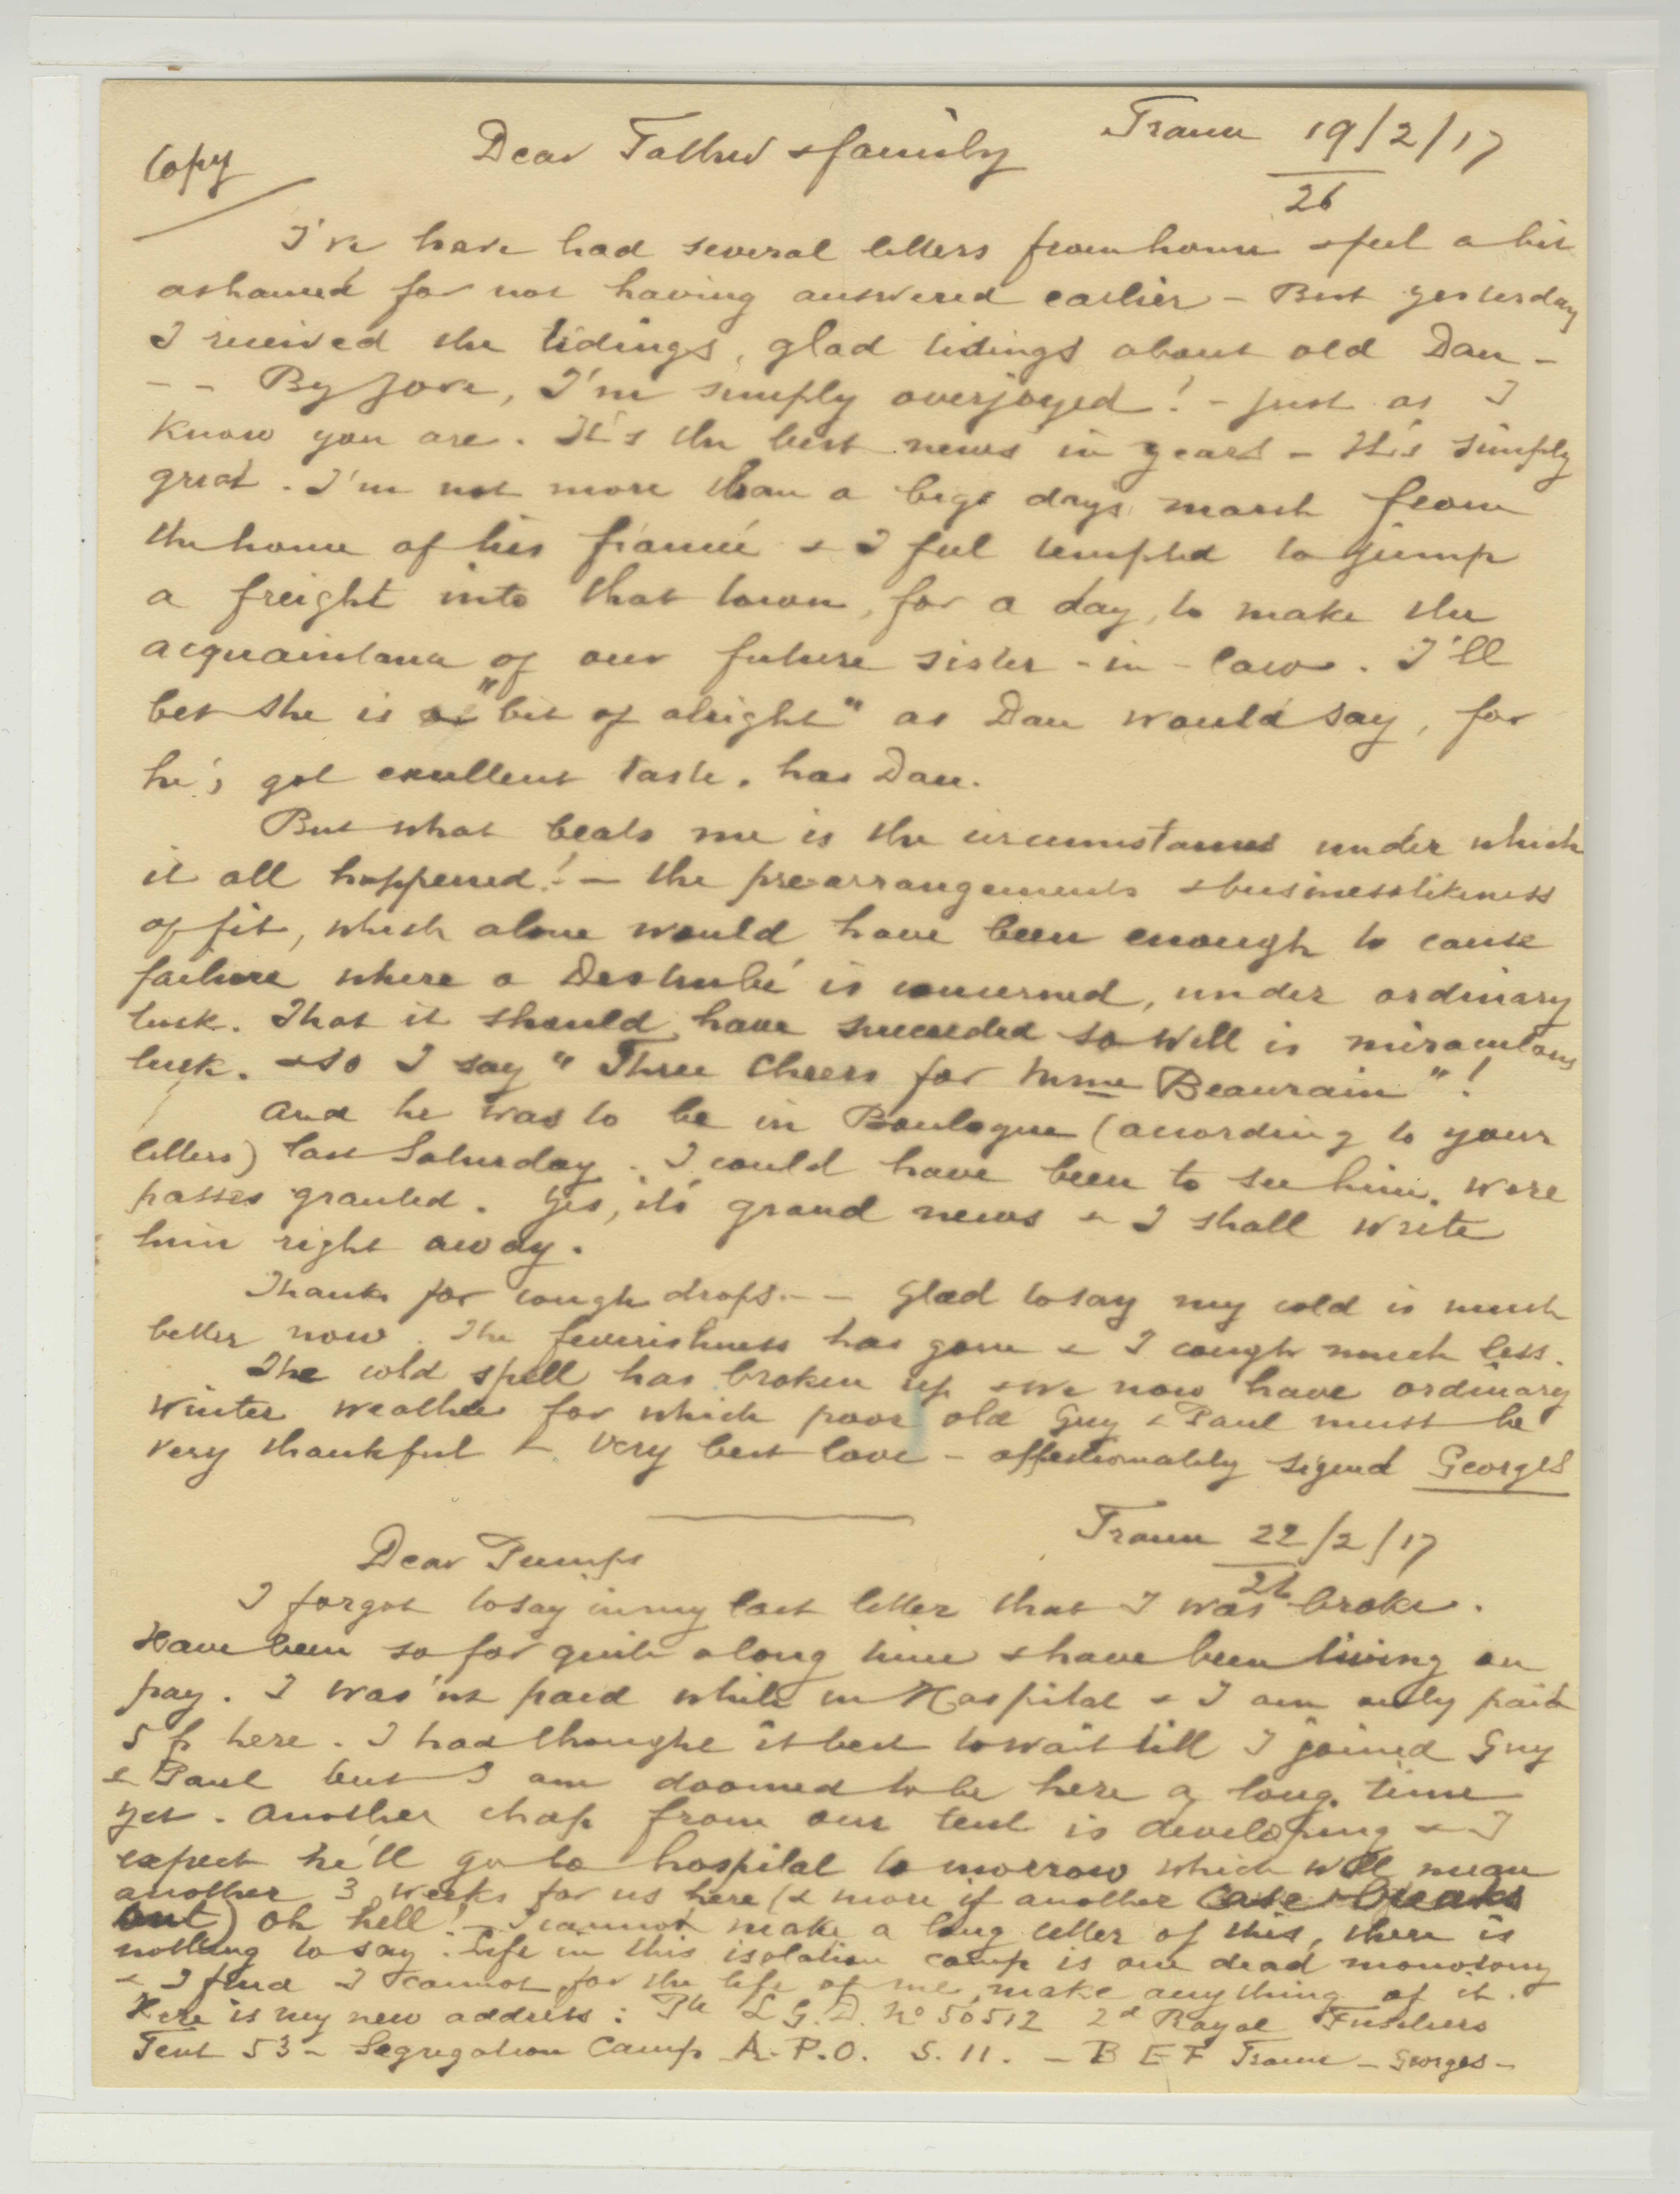 Copy
Dear Father & family France 19/2/17
26
I've have had several letters from home & feel a bit
ashamed for not having answered earlier - But yesterday
I received the tidings, glad tidings about old Dan -
- - By Jove, I'm simply overjoyed! - just as I
know you are. It's the best news in years - It's simply
great. I'm not more than a big days march from
the home of his fiancée & I feel tempted to jump
a freight into that town, for a day, to make the
acquaintance of our future sister-in-law. I'll
bet she is a "bit of alright" as Dan would say, for
he's got excellent taste, has Dan.
But what beats me is the circumstances under which
it all happened! - the prearrangements & businesslikeness
of it, which alone would have been enough to cause
failure where a Destrubé is concerned, under ordinary
luck. That it should have succeeded so well is miraculous
luck. & so I say "Three Cheers for Mme Beaurain"!
And he was to be in Boulogne (according to your
letters) last Saturday. I could have been to see him, were
passes granted. Yes, it's grand news & I shall write
him right away.
Thanks for cough drops. - - Glad to say my cold is much
better now. The feverishness has gone & I cough much less.
The cold spell has broken up & we now have ordinary
winter weather for which poor old Guy & Paul must be
very thankful & very best love - affectionately signed Georges
France 22/2/17
26
Dear Pumps
I forgot to say in my last letter that I was broke.
Have been so for quite a long time & have been living on
pay. I was'nt paid while in Hospital & I am only paid
5 f here. I had thought it best to wait till I joined Guy
& Paul but I am doomed to be here a long time
yet. Another chap from our tent is developing & I
expect he'll go to hospital to morrow which will mean
another 3 weeks for us here (& more if another case breaks
out) Oh hell! - I cannot make a long letter of this, there is
nothing to say. Life in this isolation camp is one dead monotony
& I find I cannot, for the life of me, make anything of it.
Here is my new address: Pte L.G.D. No 50512 2d Royal Fusiliers
Tent 53 - Segregation Camp A.P.O. S.11. - B E F France - Georges -